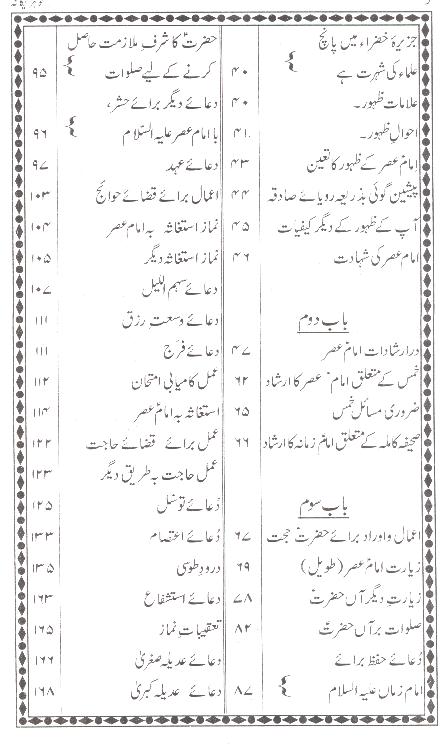 جزیرۂ خضراء میں پانچ
علماء کی شہرت ہے ۴۰
علاماتِ ظہور۔ ۴۰
احوالِ ظہور۔ ۴۱
امام عصر کے ظہور کا تعین ۴۳
پیشین گوئی بذریعہ رویائے صادقہ ۴۴
آپ کے ظہور کے دیگر کیفیات ۴۵
امام عصر کی شہادت ۴۶
باب دوم
در ارشادات امام عصر ۴۷
خمس کے متعلق امام عصر کا ارشاد ۶۲
ضروری مسائل خمس ۶۵
صحیفہ کاملہ کے متعلق امام زمانہ کا ارشاد ۶۶
باب سوم
اعمال و اوراد برائے حضرت حجت ۶۷
زیارت امام عصر (طویل) ۶۹
زیارتِ دیگر آں حضرتؑ ۷۸
صلوات بر آں حضرتؑ ۸۲
دُعائے حفظ برائے
امام زماں علیہ السلام ۸۷
حضرتؑ کا شرفِ ملازمت حاصل
کرنے کے لیے صلوات ۹۵
دعائے دیگر برائے حشر،
با امام عصر علیہ السّلام ۹۶
دعائے عہد ۹۷
اعمال برائے قضائے حوائج ۱۰۳
نماز استغاثہ بہ امام عصر ۱۰۴
نماز استغاثہ دیگر ۱۰۵
دعائے سہم اللیل ۱۰۷
دعائے وسعتِ رزق ۱۱۱
دعائے فرج ۱۱۱
عمل کامیابی امتحان ۱۱۲
استغاثہ بہ امام عصر ۱۱۴
عمل برائے قضائے حاجت ۱۲۲
عمل حاجت بہ طریق دیگر ۱۲۳
دُعائے توسّل ۱۲۵
دُعائے اعتصام ۱۳۳
درودِ طوسی ۱۳۵
دعائے استشفاع ۱۶۳
تعقیباتِ نماز ۱۶۵
دعائے عدیلہ صغریٰ ۱۶۶
دعائے عدیلہ کبریٰ ۱۶۸